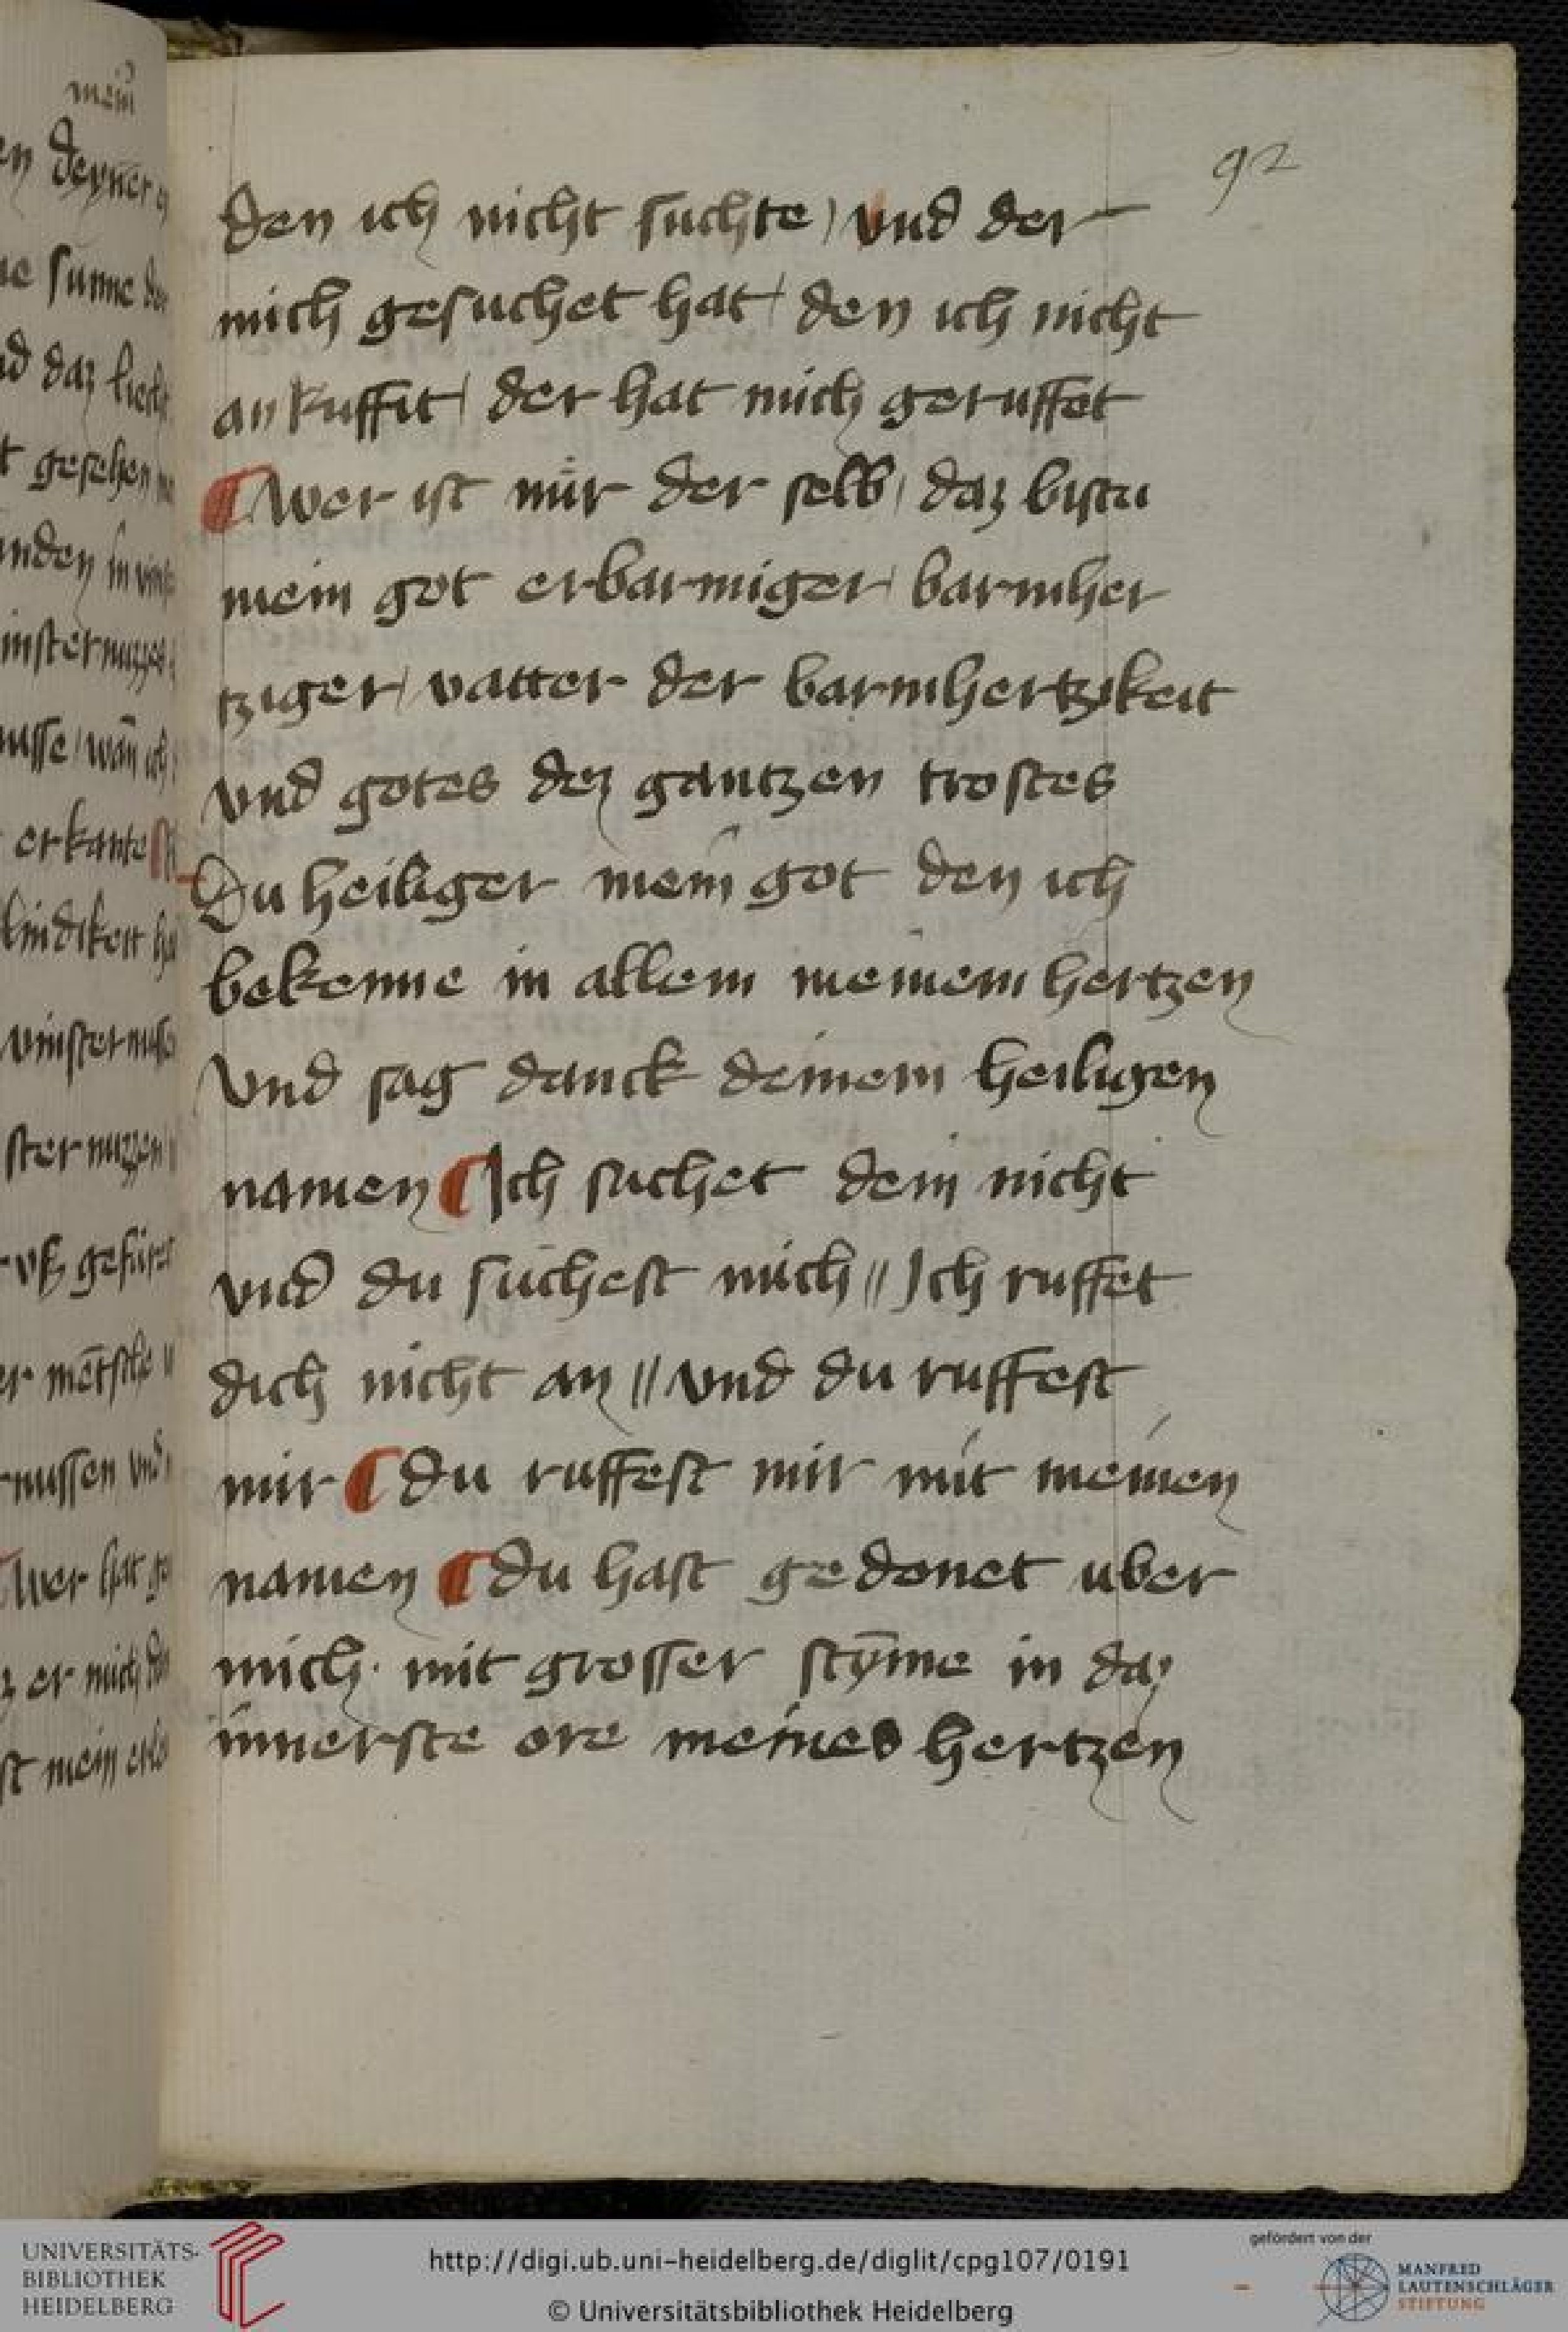 92
den ich nicht suchte / vnd der
mich gesuchet hat / den ich nicht
an Ruffit / der hat mich geruffet
¶ Wer ist mir der selb / daz bistu
mein got erbarmiger / barmher
tziger / vatter der barmhertzikeit
vnd gotes dez gantzen trostes
Du heiliger mein got den ich
bekenne in allem meinem hertzen
vnd sag danck deinem heiligen
namen ¶ Ich suchet dein nicht
vnd du suchest mich // Ich ruffet
dich nicht an // vnd du ruffest
mir ¶ du ruffest mir mit meinen
namen ¶ du hast gedonet uber
mich · mit grosser stȳme in daz
innerste ore meines hertzen
mein
deyner
sunne
daz liecht
gesehen
erkante
vß gefüret
Wer hat
er mich
mein
UNIVERSITÄTS-
BIBLIOTHEK
HEIDELBERG
http://digi.ub.uni-heidelberg.de/diglit/cpg107/0191
© Universitätsbibliothek Heidelberg
gefördert von der
MANFRED
LAUTENSCHLÄGER
STIFTUNG